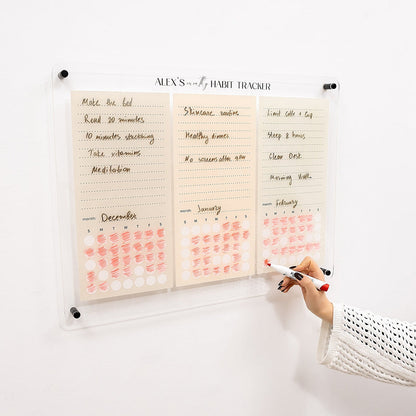 ALEX'S monthly HABIT TRACKER
Make the bed
Read 20 minutes
10 minutes stretching
Take vitamins
Meditation
MONTH: December
S M T W T F S
Skincare routine
Healthy dinner
No screens after 9pm
MONTH: January
S M T W T F S
Limit coffee 1 cup
Sleep 8 hours
Clean Desk
Morning Walk
MONTH: February
S M T W T F S